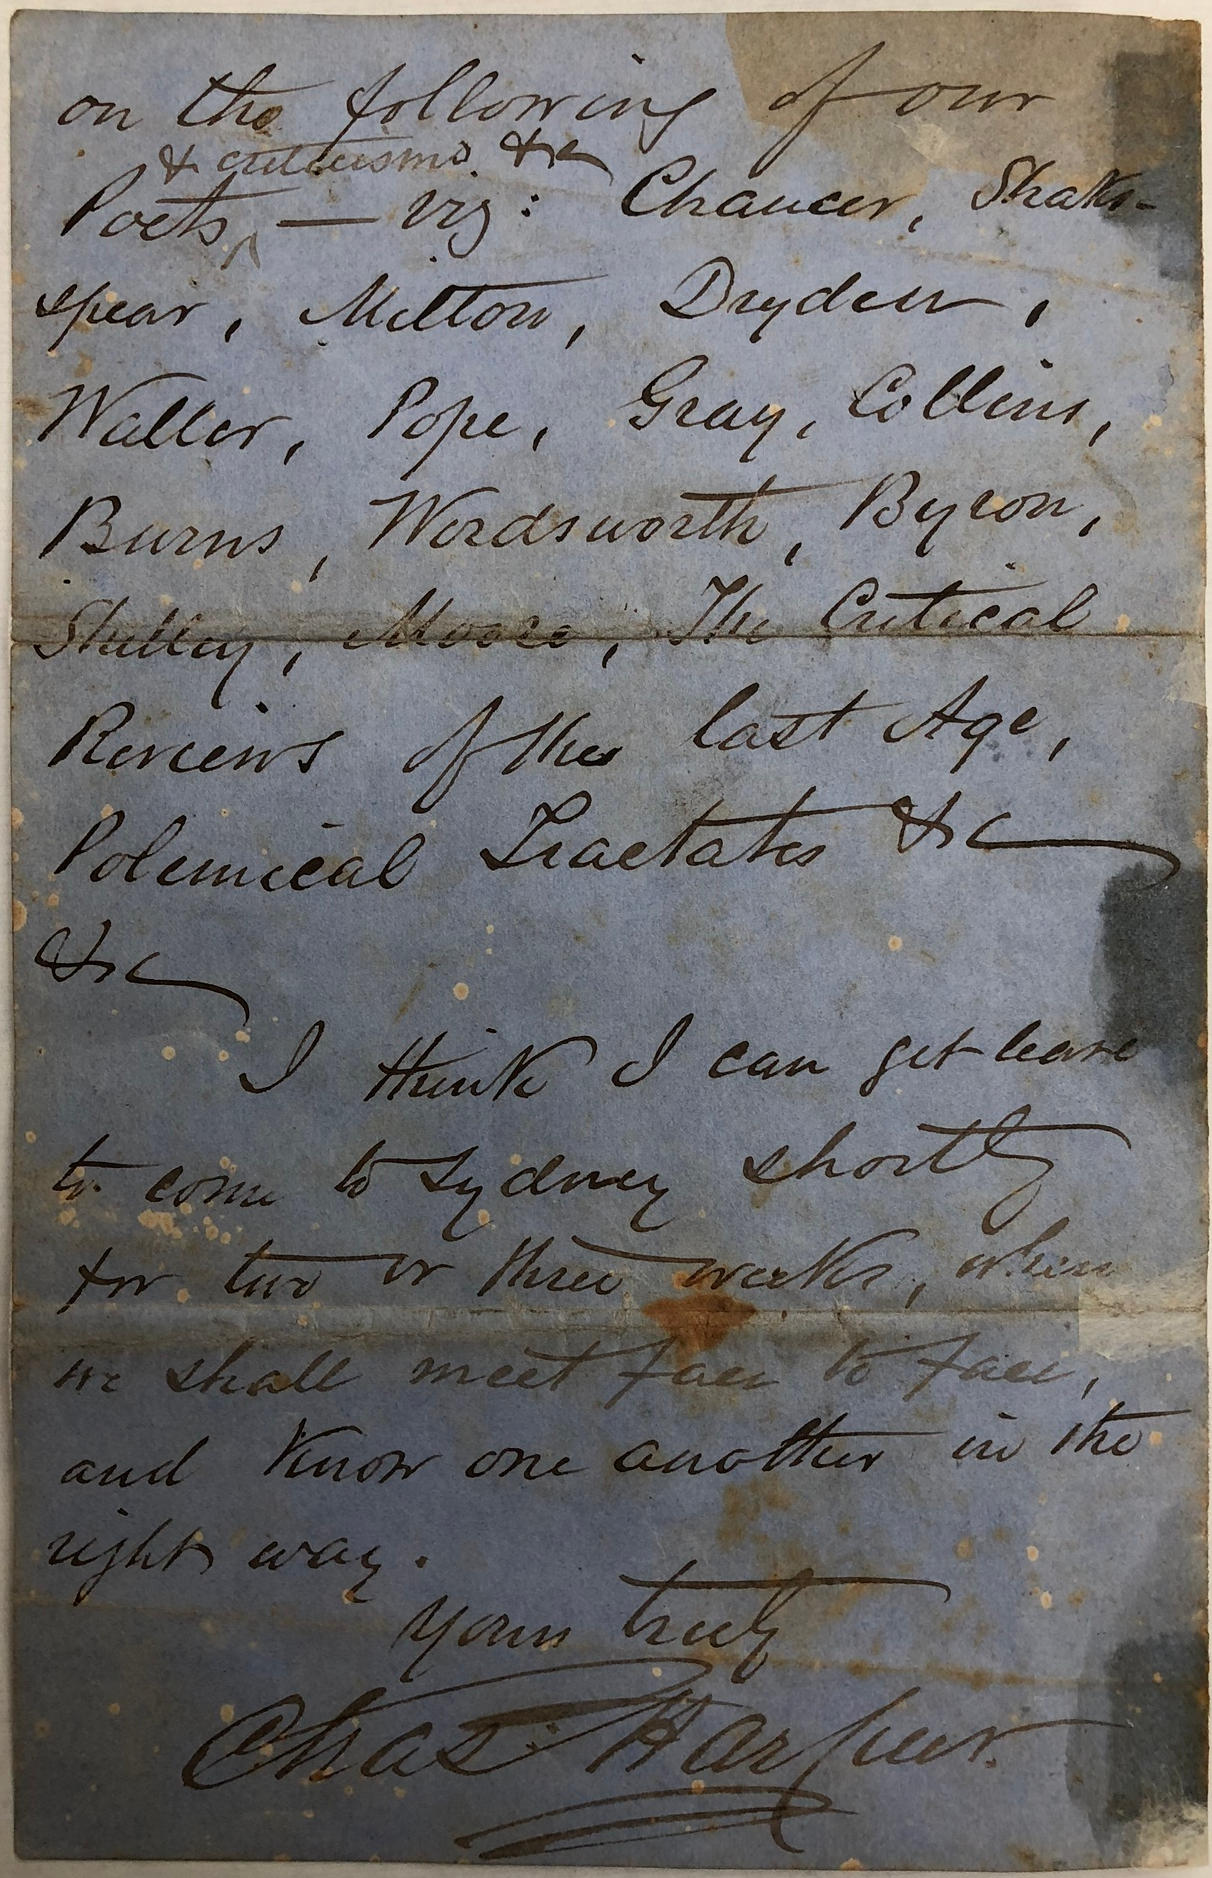 on the following of our
& criticisms &c
Poets, — viz: Chaucer, Shaks-
spear, Milton, Dryden,
Waller, Pope, Gray, Collins,
Burns, Wordsworth, Byron,
Shelley, Moore, The Critical
Reviews of the last Age,
Polemical Tractates &c
&c
I think I can get leave
to come to Sydney shortly
for two or three weeks, when
we shall meet face to face,
and know one another in the
right way.
Yours truly
Chas: Harpur.